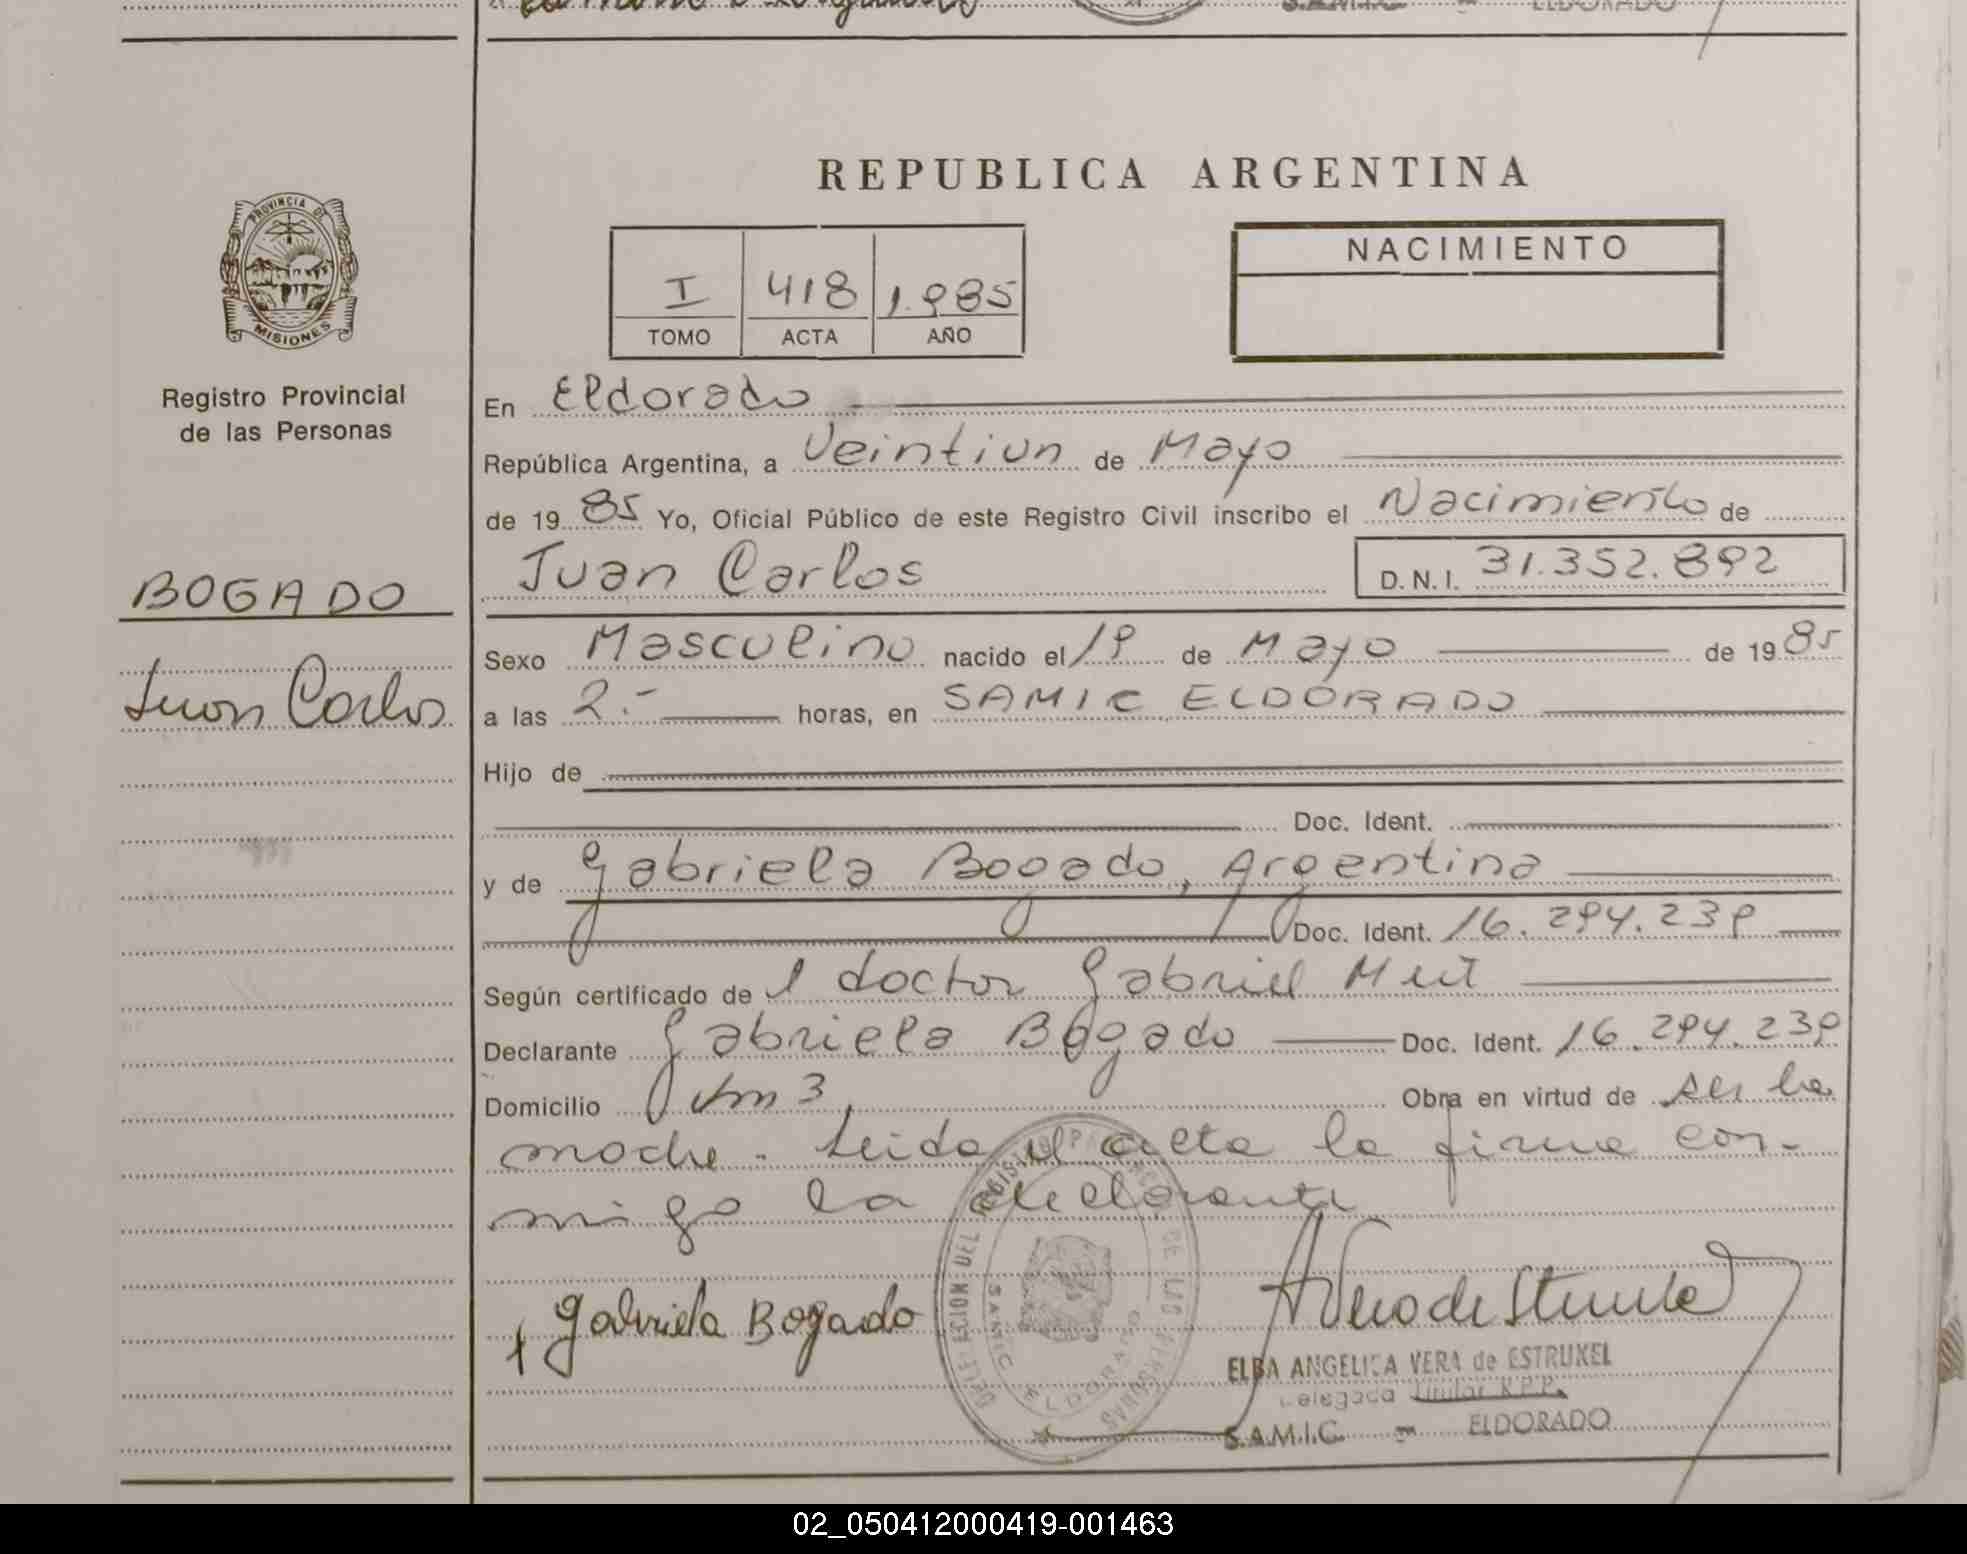 S.A.M.I.C. - ELDORADO
REPUBLICA ARGENTINA
PROVINCIA DE
MISIONES
Registro Provincial
de las Personas
I 418 1.985
TOMO ACTA AÑO
NACIMIENTO
En Eldorado
República Argentina, a Veintiun de Mayo
de 1985 Yo, Oficial Público de este Registro Civil inscribo el Nacimiento de
Juan Carlos D.N.I. 31.352.892
BOGADO
Juan Carlos
Sexo Masculino nacido el 19 de Mayo de 1985
a las 2.- horas, en SAMIC ELDORADO
Hijo de
Doc. Ident.
y de Gabriela Bogado, Argentina
Doc. Ident. 16.294.239
Según certificado de l doctor Gabriel
Declarante Gabriela Bogado Doc. Ident. 16.294.239
Domicilio Km 3 Obra en virtud de ser la
madre. Leida el acta la firma con-
migo la declarante
Gabriela Bogado
DELEGACION DEL REGISTRO DE LAS PERSONAS
SAMIC ELDORADO
ELBA ANGELICA VERA de ESTRUKEL
Delegada Titular R.P.P.
S.A.M.I.C. - ELDORADO
02_050412000419-001463